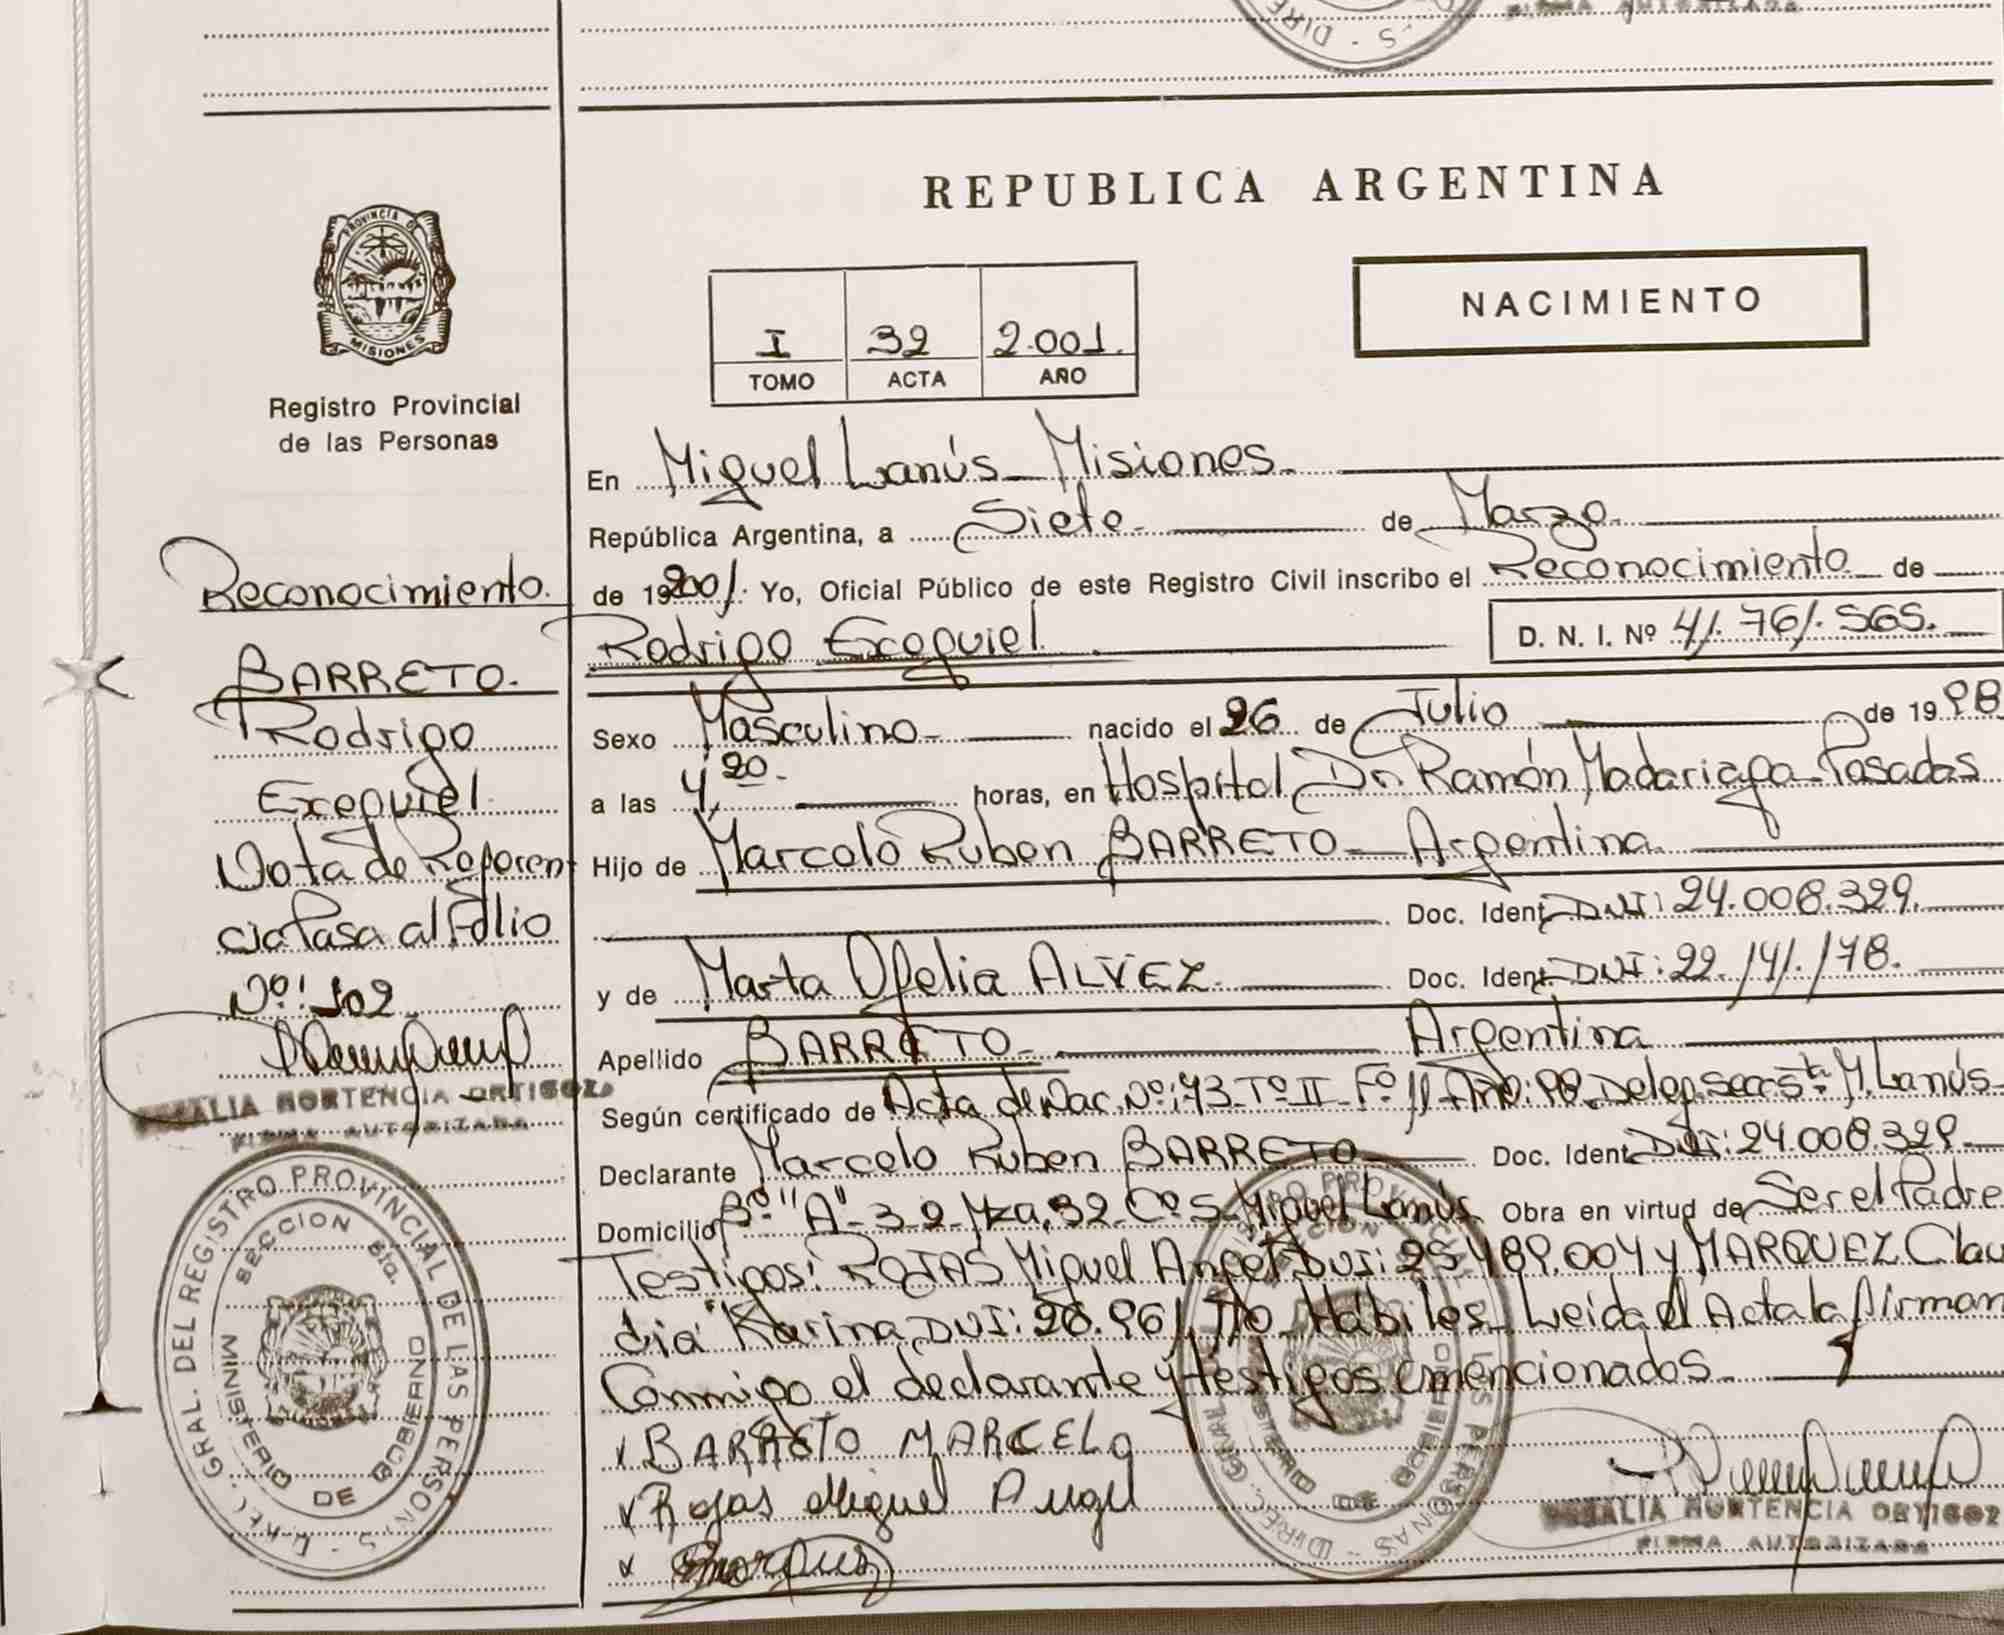 REPUBLICA ARGENTINA
NACIMIENTO
I 32 2.001.
TOMO ACTA AÑO
PROVINCIA DE
MISIONES
Registro Provincial
de las Personas
Reconocimiento.
BARRETO.
Rodrigo
Exequiel
Nota de Referen
cia Pasa al Folio
Nº: 102
HORTENCIA ORTIGOZA
FIRMA AUTORIZADA
DIREC. GRAL. DEL REGISTRO PROVINCIAL DE LAS PERSONAS
SECCION 5ta.
MINISTERIO DE GOBIERNO
En Miguel Lanús - Misiones.
República Argentina, a Siete de Marzo
de 192001. Yo, Oficial Público de este Registro Civil inscribo el Reconocimiento de
Rodrigo Exequiel D. N. I. Nº 41.761.565.
Sexo Masculino nacido el 26 de Julio de 1998
a las 4,20 horas, en Hospital Dr. Ramón Madariaga - Posadas
Hijo de Marcelo Ruben BARRETO - Argentina
Doc. Ident. DNI: 24.008.329.
y de Marta Ofelia ALVEZ. Doc. Ident. DNI: 22.141.178.
Apellido BARRETO - Argentina
Según certificado de Acta de Nac. Nº: 43 Tº II - Fº 11 - Año: 98. Deleg. Secc 5ta M. Lanús
Declarante Marcelo Ruben BARRETO Doc. Ident. DNI: 24.008.329.
Domicilio Bº "A" - 3-2 - Mza. 32 Cº 5 - Miguel Lanús Obra en virtud de Ser el Padre
Testigos: ROJAS Miguel Angel DNI: 25.489.004 y MARQUEZ Clau
dia Karina DNI: Habiles - Leida el Acta la firman
Conmigo el declarante y testigos mencionados.
x BARRETO MARCELO
x Rojas Miguel Angel
x Marquez
DIREC. GRAL. DEL REGISTRO PROVINCIAL DE LAS PERSONAS
HORTENCIA ORTIGOZ
FIRMA AUTORIZADA